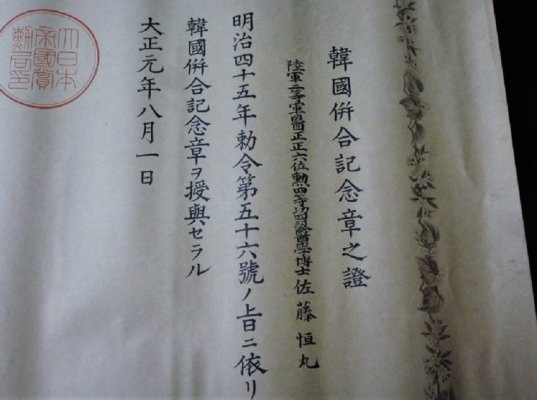 韓國併合記念章之證
陸軍二等軍醫正正六位勲四等功四級醫學博士佐藤恒丸
明治四十五年勅令第五十六號ノ旨ニ依リ
韓國併合記念章ヲ授與セラル
大正元年八月一日
大日本
帝國賞
勲局印